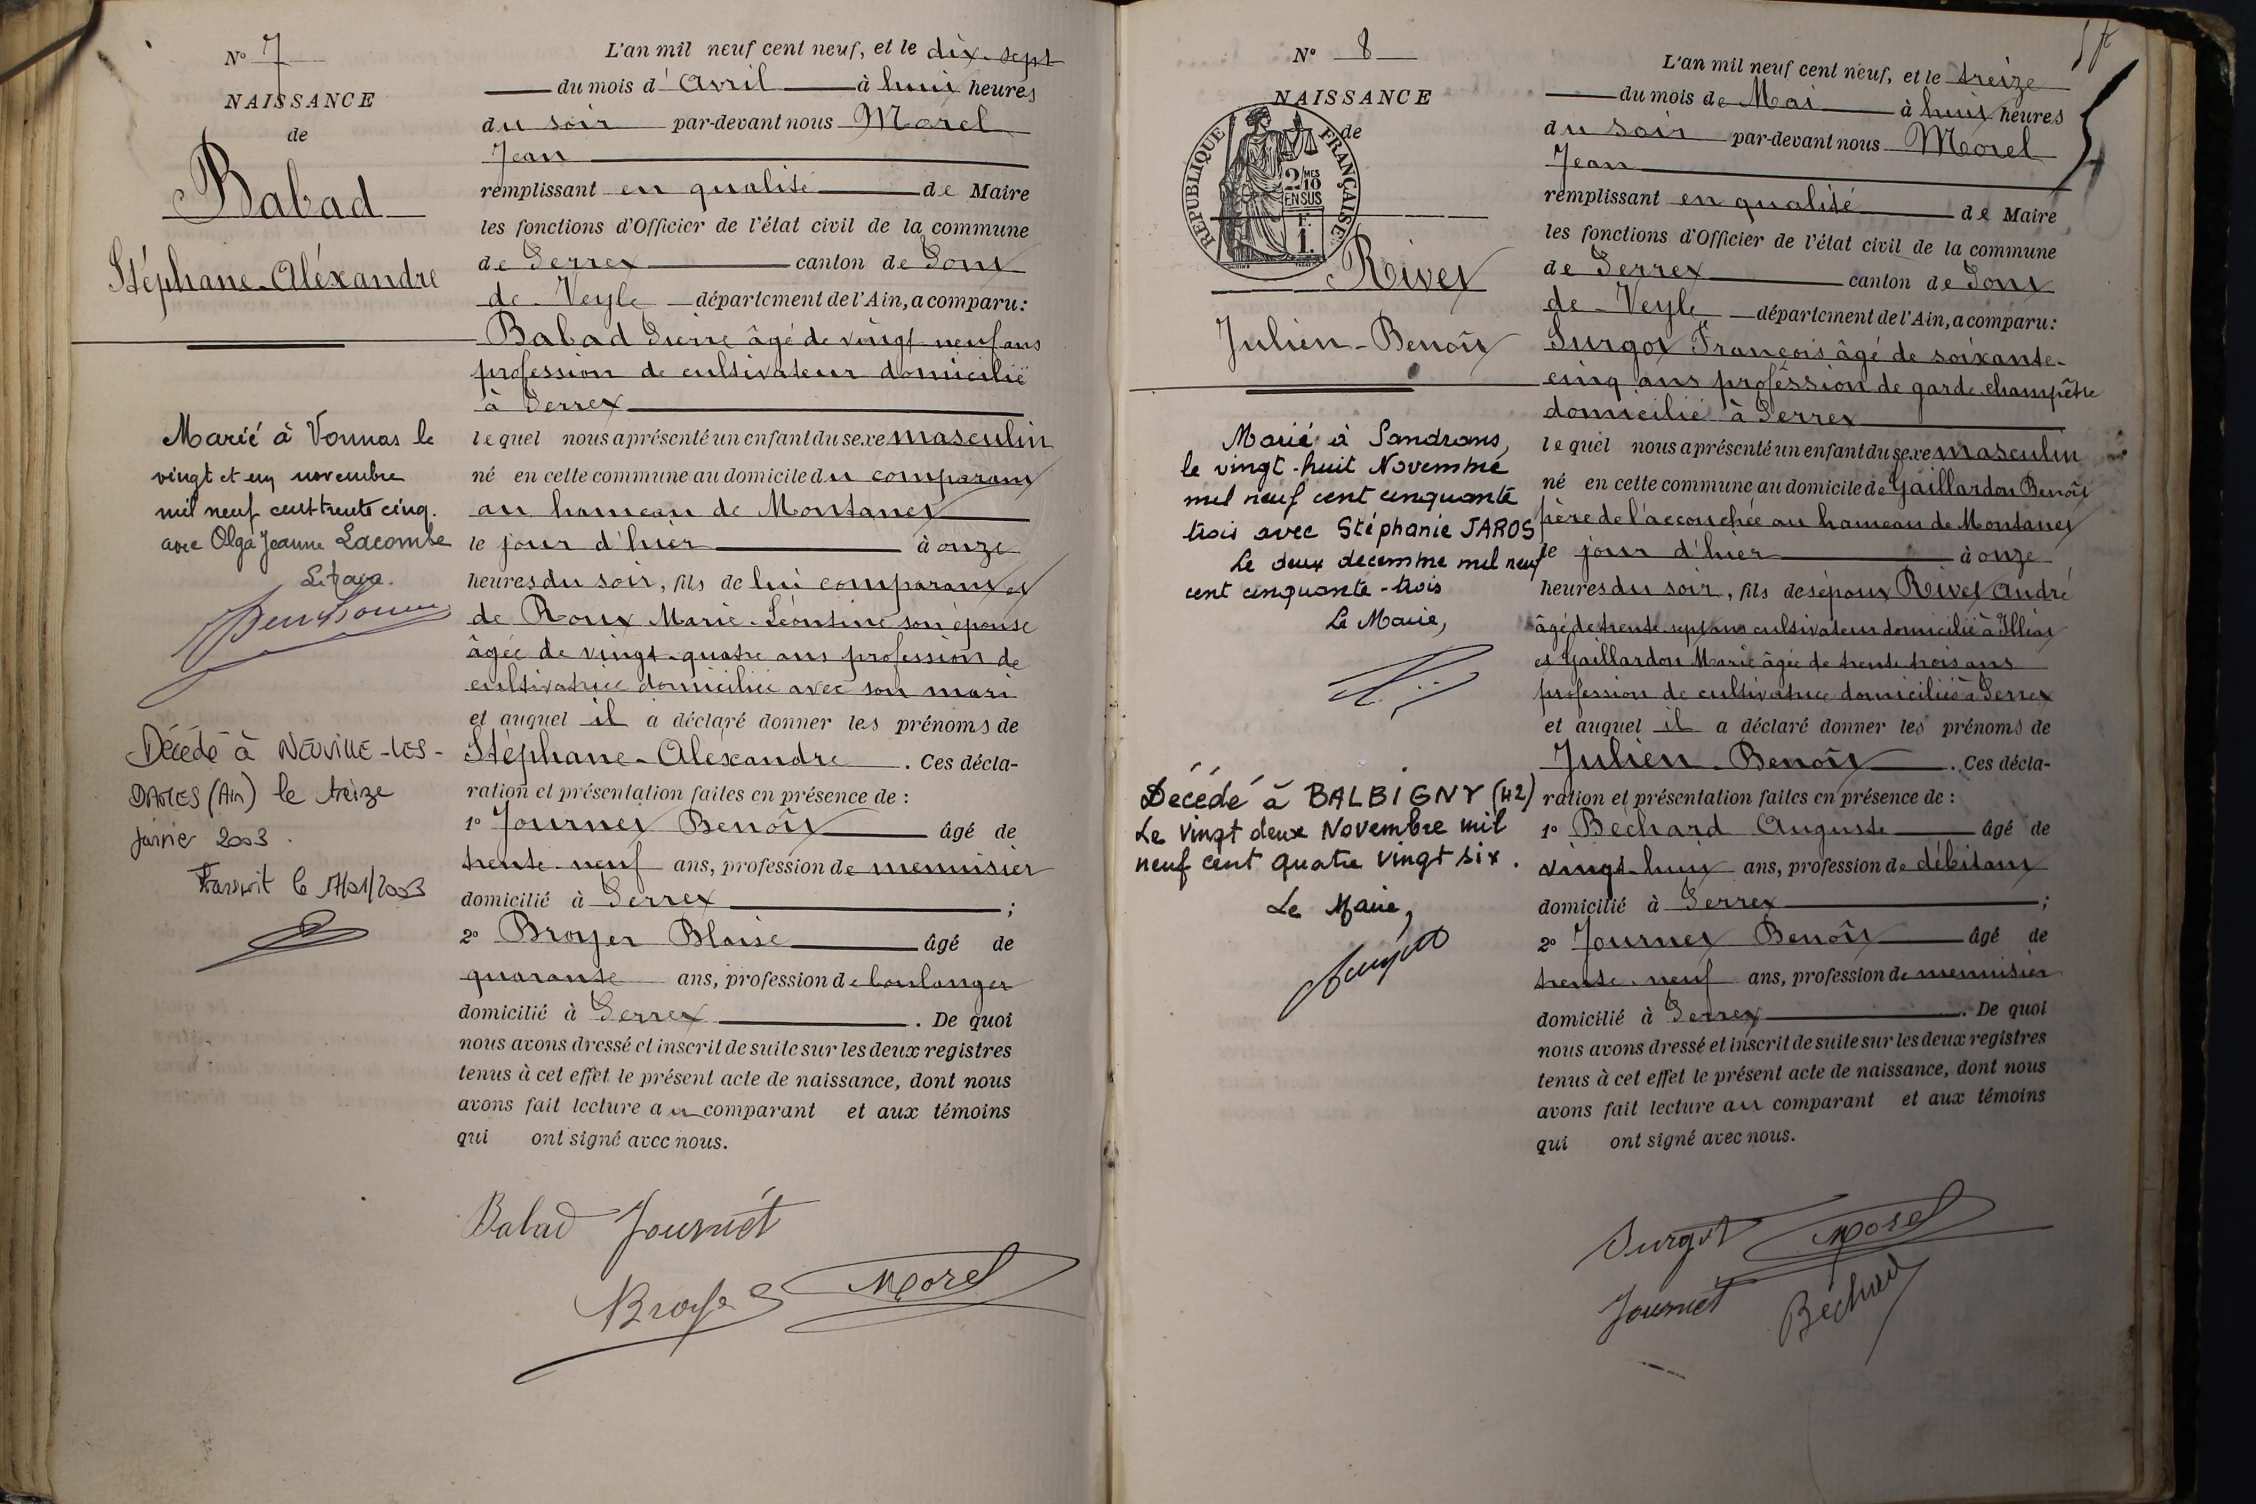 N° 7
NAISSANCE
de
Babad
Stéphane-Aléxandre
Marié à Vonnas le
vingt et un novembre
mil neuf cent trente cinq.
avec Olga Jeanne Lacombe
Décédé à NEUVILLE-LES-
DAMES (Ain) le treize
janvier 2003.
Transcrit le 17/01/2003
L'an mil neuf cent neuf, et le dix-sept
du mois d'Avril à huit heures
du soir par-devant nous Morel
Jean
remplissant en qualité de Maire
les fonctions d'Officier de l'état civil de la commune
de Perrex canton de Pont
de Veyle département de l'Ain, a comparu:
Babad Pierre âgé de vingt neuf ans
profession de cultivateur domicilié
à Perrex
lequel nous a présenté un enfant du sexe masculin
né en cette commune au domicile du comparant
au hameau de Montanet
le jour d'hier à onze
heures du soir, fils de lui comparant et
de Roux Marie-Léontine son épouse
âgée de vingt-quatre ans profession de
cultivatrice domiciliée avec son mari
et auquel il a déclaré donner les prénoms de
Stéphane-Aléxandre. Ces décla-
ration et présentation faites en présence de :
1° Journet Benoît âgé de
trente-neuf ans, profession de menuisier
domicilié à Perrex ;
2° Broyer Blaise âgé de
quarante ans, profession de boulanger
domicilié à Perrex. De quoi
nous avons dressé et inscrit de suite sur les deux registres
tenus à cet effet le présent acte de naissance, dont nous
avons fait lecture au comparant et aux témoins
qui ont signé avec nous.
Babad Journet
Broyer Morel
N° 8
NAISSANCE
de
RÉPUBLIQUE FRANÇAISE
2/10 MES
EN SUS
F.
1.
Rivet
Julien-Benoît
Marié à Sandrans,
le vingt-huit Novembre
mil neuf cent cinquante
trois avec Stéphanie JAROS
Le deux décembre mil neuf
cent cinquante-trois
Le Maire,
Décédé à BALBIGNY (42)
Le vingt deux Novembre mil
neuf cent quatre vingt six.
Le Maire,
L'an mil neuf cent neuf, et le treize
du mois de Mai à huit heures
du soir par-devant nous Morel
Jean
remplissant en qualité de Maire
les fonctions d'Officier de l'état civil de la commune
de Perrex canton de Pont
de Veyle département de l'Ain, a comparu:
Surgot François âgé de soixante-
cinq ans profession de garde-champêtre
domicilié à Perrex
lequel nous a présenté un enfant du sexe masculin
né en cette commune au domicile de Gaillardon Benoît
père de l'accouchée au hameau de Montanet
le jour d'hier à onze
heures du soir, fils des époux Rivet André
âgé de trente sept ans cultivateur domicilié à Illiat
et Gaillardon Marie âgée de trente trois ans
profession de cultivatrice domiciliée à Perrex
et auquel il a déclaré donner les prénoms de
Julien-Benoît. Ces décla-
ration et présentation faites en présence de :
1° Béchard Auguste âgé de
vingt-huit ans, profession de débitant
domicilié à Perrex ;
2° Journet Benoît âgé de
trente-neuf ans, profession de menuisier
domicilié à Perrex. De quoi
nous avons dressé et inscrit de suite sur les deux registres
tenus à cet effet le présent acte de naissance, dont nous
avons fait lecture au comparant et aux témoins
qui ont signé avec nous.
Surgot Morel
Journet Béchard